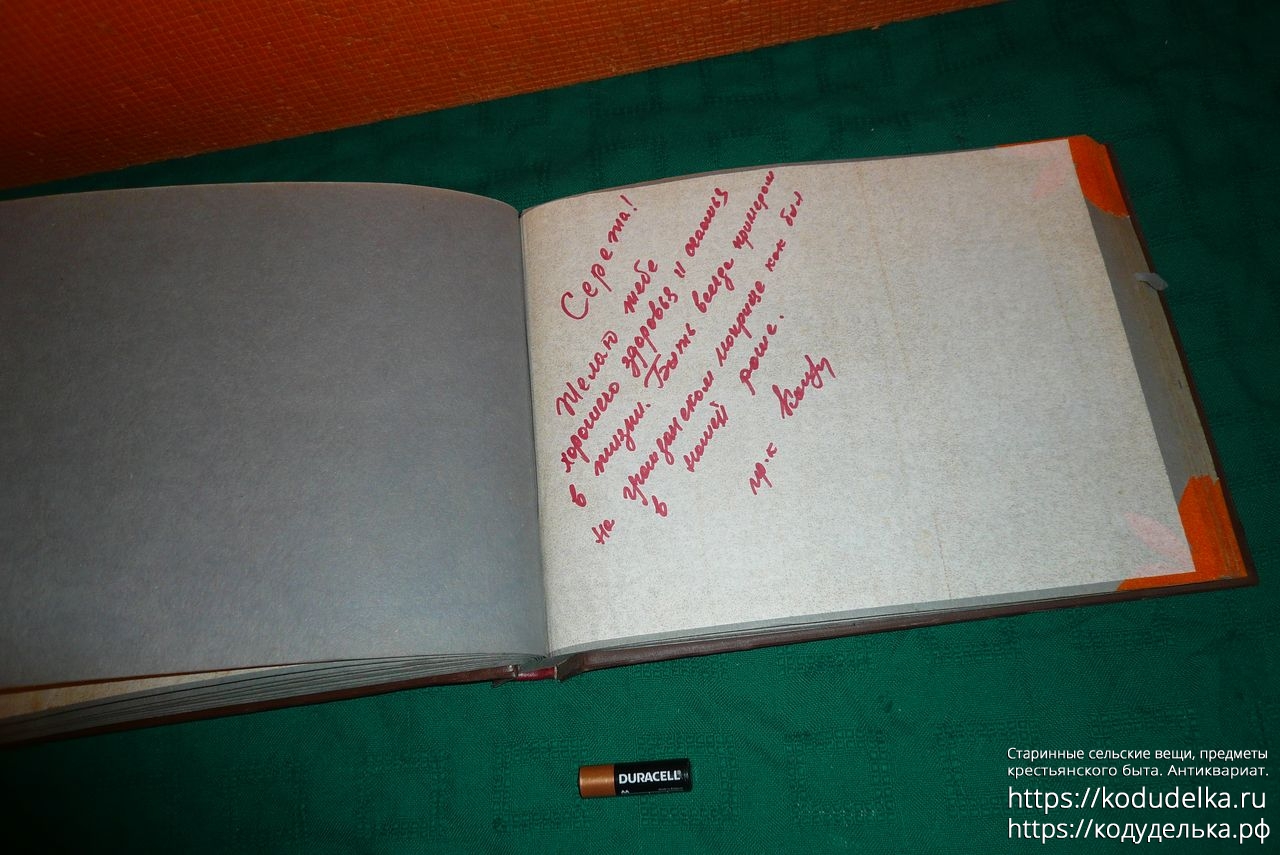 Сережа!
Желаю тебе
хорошего здоровья и счастья
в жизни. Быть всегда примером
на гражданском поприще как был
в нашей роте.
пр-к
DURACELL
AA
Старинные сельские вещи, предметы
крестьянского быта. Антиквариат.
https://kodudelka.ru
https://кодуделька.рф